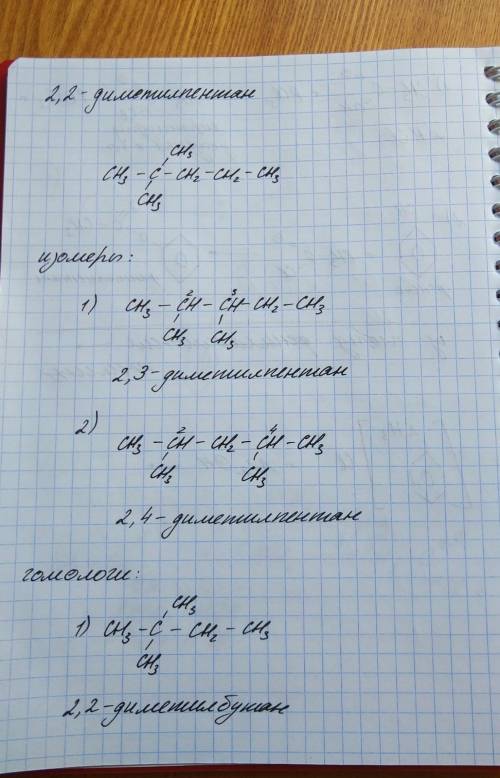 2,2-диметилпентан
CH₃
CH₃ - C - CH₂ - CH₂ - CH₃
CH₃
изомеры:
1) CH₃ - ²CH - ³CH - CH₂ - CH₃
CH₃ CH₃
2,3-диметилпентан
2) CH₃ - ²CH - CH₂ - ⁴CH - CH₃
CH₃ CH₃
2,4-диметилпентан
гомологи:
CH₃
1) CH₃ - C - CH₂ - CH₃
CH₃
2,2-диметилбутан